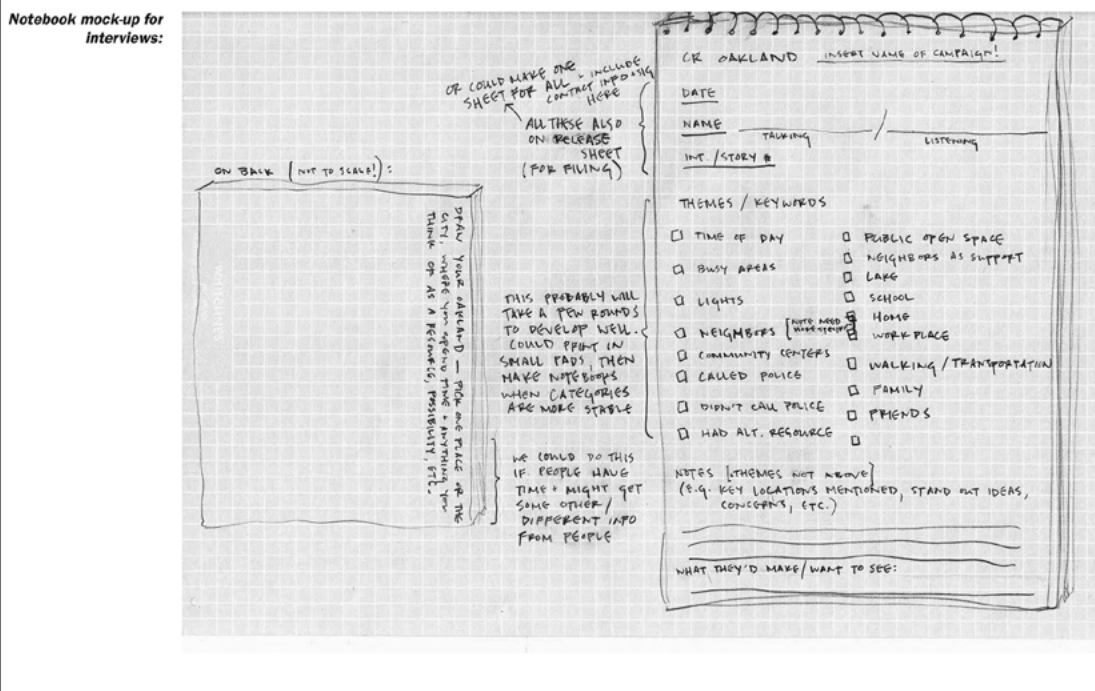 Notebook mock-up for
interviews:
OR COULD MAKE ONE
SHEET FOR ALL + INCLUDE
CONTACT INFO + SIG
HERE
ALL THESE ALSO
ON RELEASE
SHEET
(FOR FILING)
CR OAKLAND INSERT NAME OF CAMPAIGN!
DATE
NAME /
TALKING LISTENING
INT./STORY #
ON BACK (NOT TO SCALE!):
DRAW YOUR OAKLAND — PICK ONE PLACE OR THE
CITY, WHERE YOU SPEND TIME + ANYTHING YOU
THINK OF AS A RESOURCE, POSSIBILITY, ETC.
THIS PROBABLY WILL
TAKE A FEW ROUNDS
TO DEVELOP WELL.
COULD PRINT IN
SMALL PADS, THEN
MAKE NOTEBOOKS
WHEN CATEGORIES
ARE MORE STABLE
WE COULD DO THIS
IF PEOPLE HAVE
TIME + MIGHT GET
SOME OTHER/
DIFFERENT INFO
FROM PEOPLE
THEMES / KEYWORDS
TIME OF DAY
BUSY AREAS
LIGHTS
NEIGHBORS [NOTE NEED
COMMUNITY CENTERS
CALLED POLICE
DIDN'T CALL POLICE
HAD ALT. RESOURCE
PUBLIC OPEN SPACE
NEIGHBORS AS SUPPORT
LAKE
SCHOOL
HOME
WORKPLACE
WALKING / TRANSPORTATION
FAMILY
FRIENDS
NOTES [THEMES NOT ABOVE]
(E.G. KEY LOCATIONS MENTIONED, STAND OUT IDEAS,
CONCERNS, ETC.)
WHAT THEY'D MAKE/WANT TO SEE: